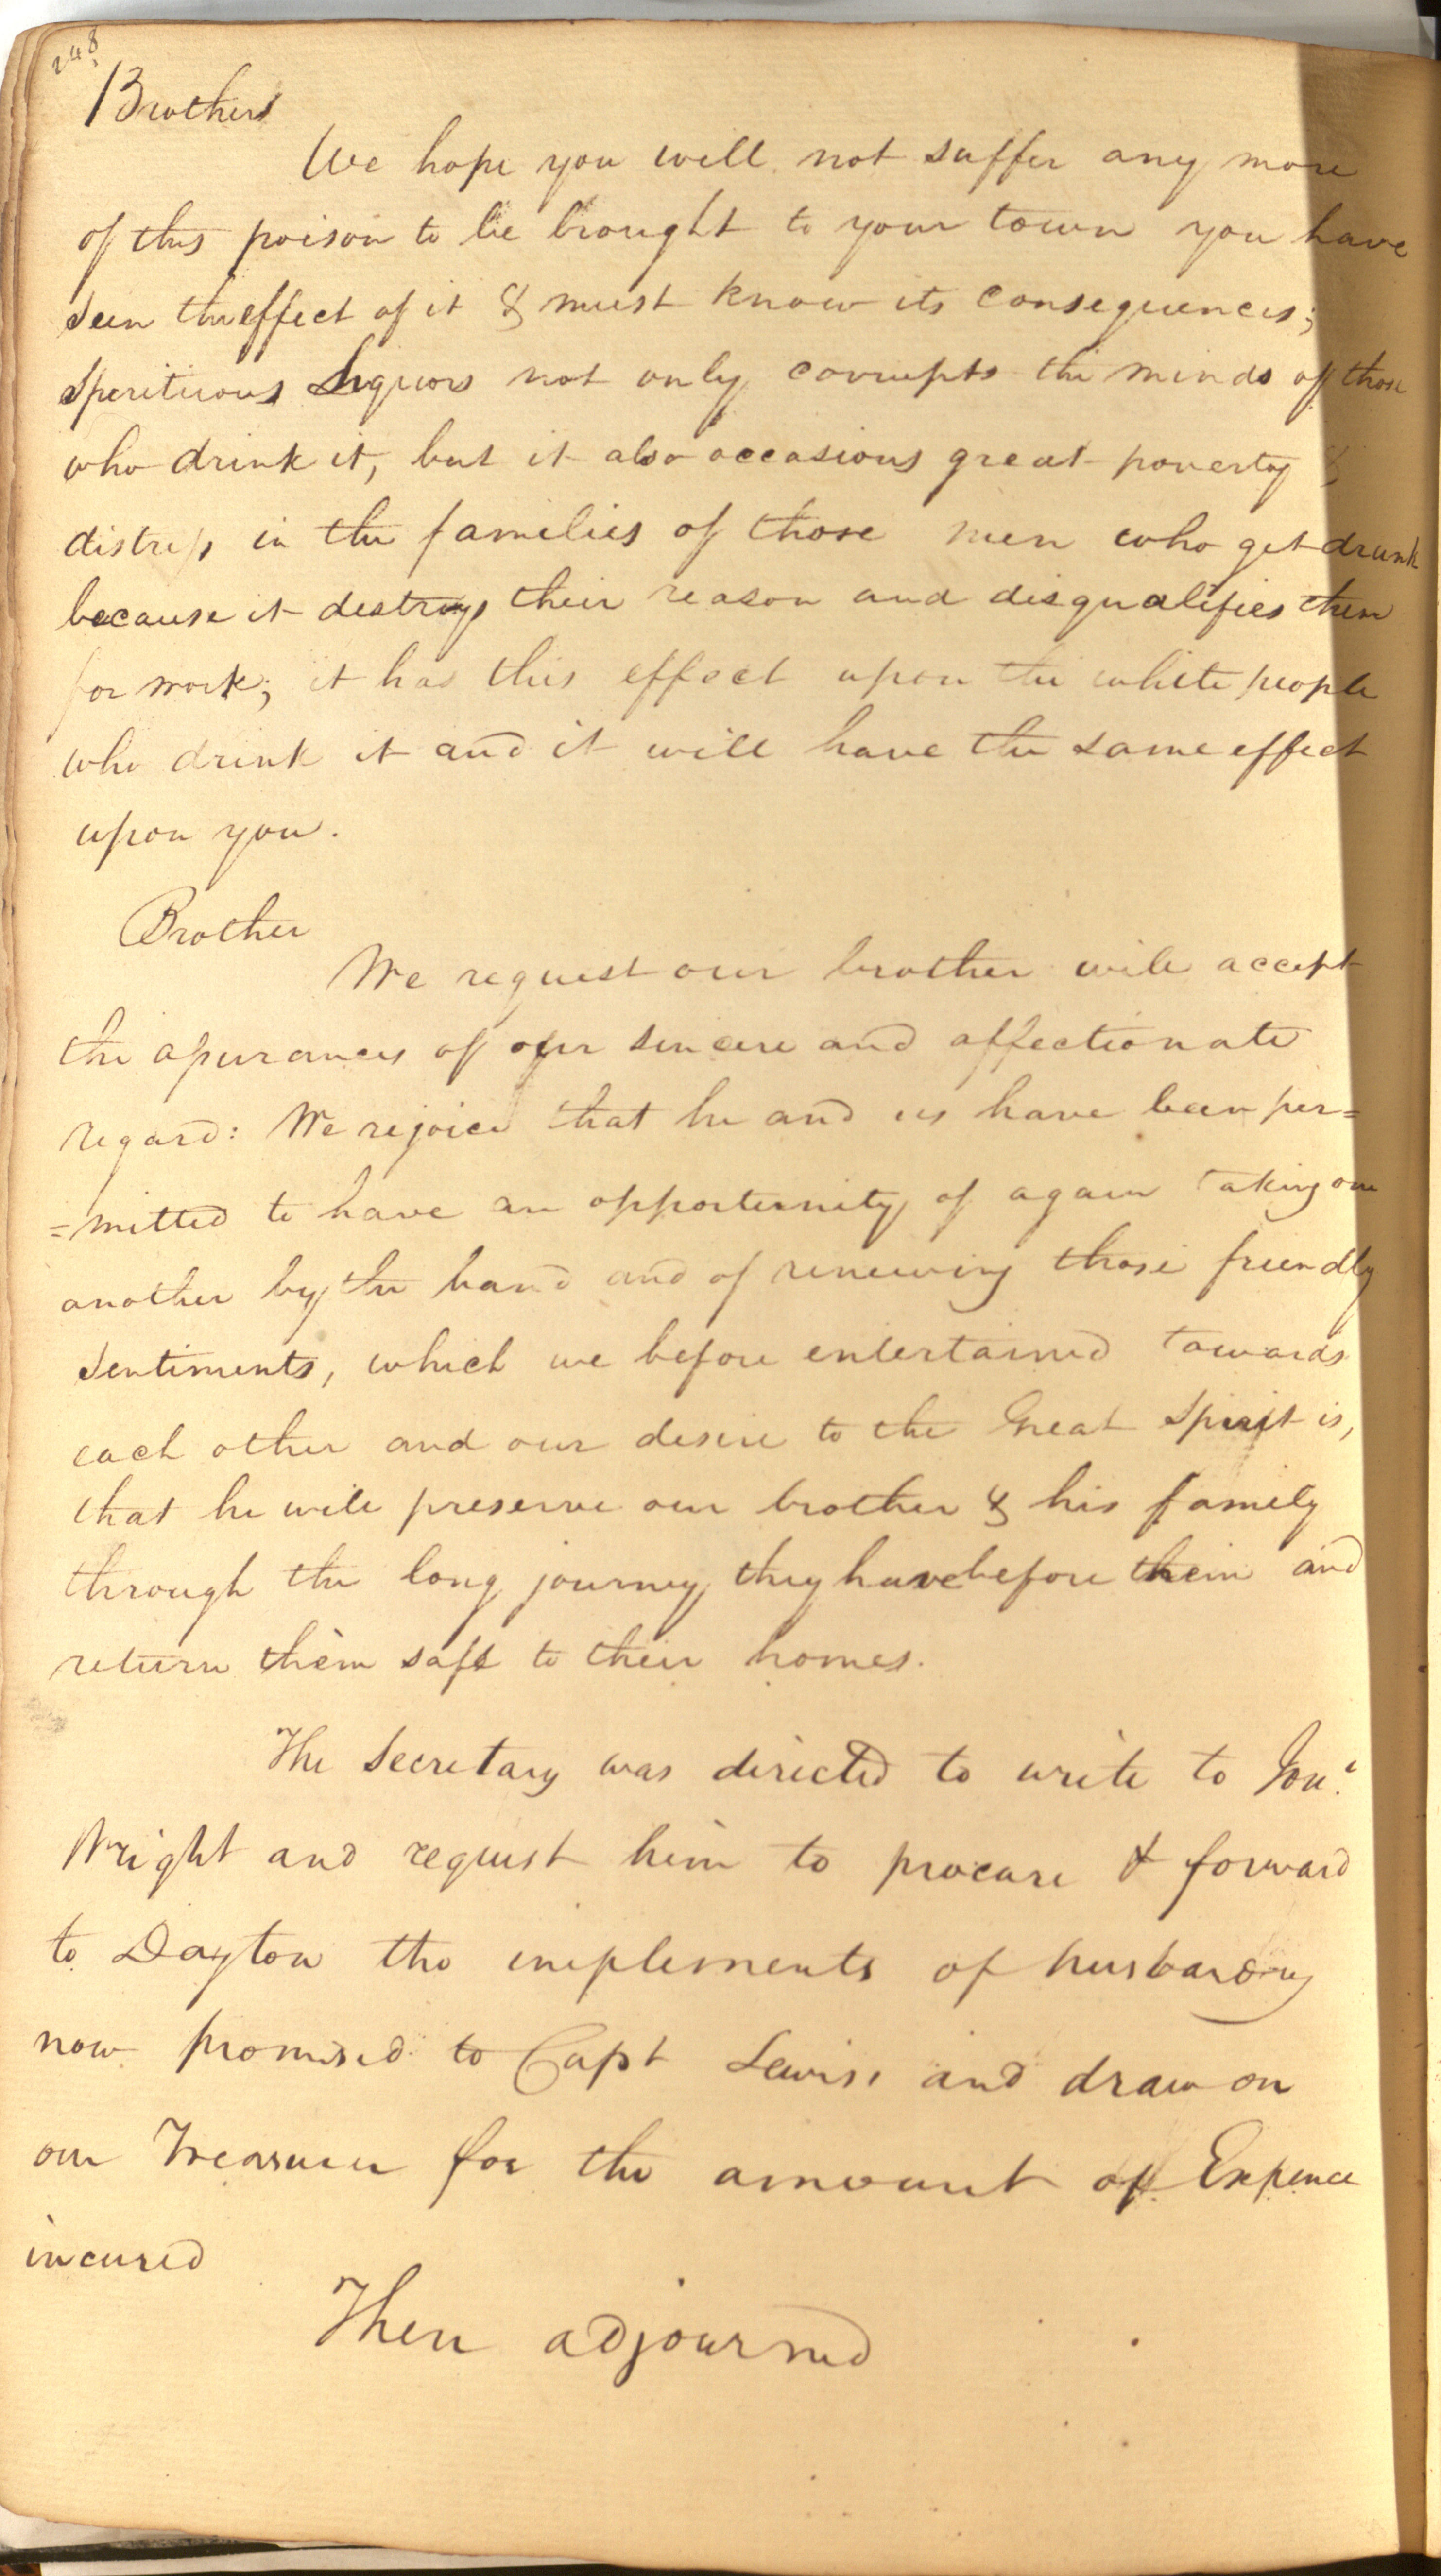 248
Brothers
We hope you will not suffer any more
of this poison to be brought to your town you have
seen the effect of it & must know its consequences;
Sperituous Liquors not only corrupts the minds of those
who drink it, but it also occasions great poverty &
distress in the families of those men who get drunk
because it destroys their reason and disqualifies them
for work; it has this effect upon the white people
who drink it and it will have the same effect
upon you.
Brother
We request our brother will accept
the assurances of our sincere and affectionate
regard: We rejoice that he and us have been per=
=mitted to have an opportunity of again taking one
another by the hand and of renewing those friendly
sentiments, which we before entertained towards
each other and our desire to the Great Spirit is,
that he will preserve our brother & his family
through the long journey they have before them and
return them safe to their homes.
The Secretary was directed to write to Jona
Wright and request him to procure & forward
to Dayton the implements of husbandry
now promised to Capt Lewis, and draw on
our Treasurer for the amount of Expence
incured
Then adjourned